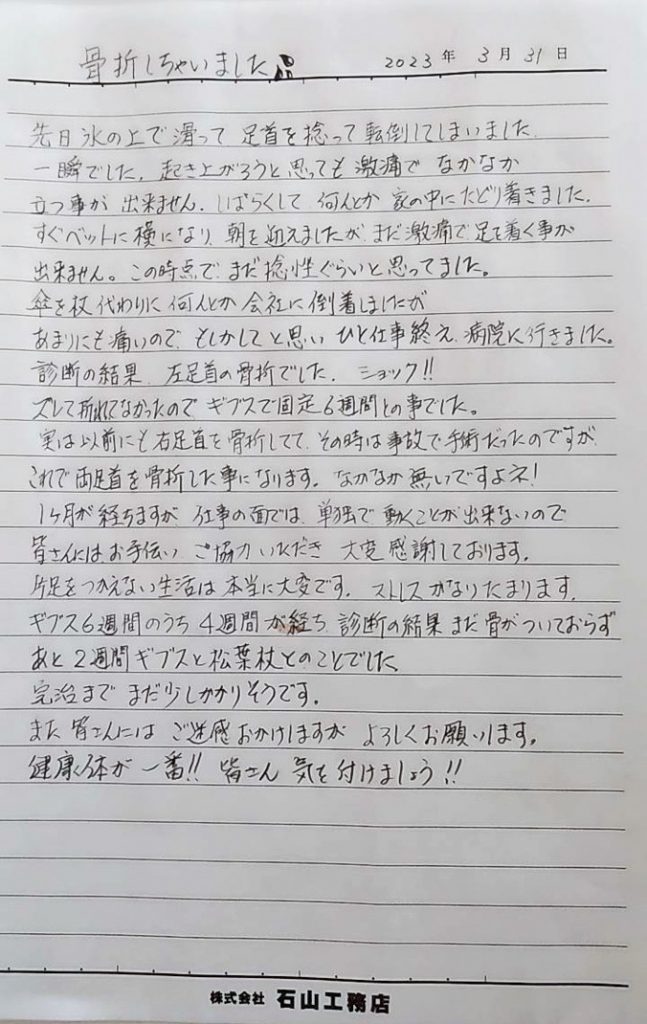 骨折しちゃいました
2023年 3月 31日
先日 氷の上で 滑って 足首を捻って 転倒してしまいました.
一瞬でした. 起き上がろうと思っても 激痛で なかなか
立つ事が 出来ません. しばらくして 何んとか 家の中にたどり着きました.
すぐベットに横になり 朝を迎えましたが まだ激痛で足を着く事が
出来ません。この時点で まだ捻挫ぐらいと思ってました。
傘を杖代わりに 何んとか 会社に到着しましたが
あまりにも痛いので もしかしてと思い ひと仕事終え 病院に行きました。
診断の結果 左足首の骨折でした. ショック!!
ズレて折れてなかったので ギブスで固定6週間との事でした。
実は以前にも右足首を骨折してて その時は事故で手術だったのですが
これで両足首を骨折した事になります。なかなか無いですよネ!
1ヶ月が経ちますが 仕事の面では 単独で動くことが出来ないので
皆さんには お手伝い ご協力いただき 大変感謝しております。
片足をつかえない生活は 本当に大変です. ストレスかなりたまります.
ギブス6週間のうち 4週間が経ち 診断の結果 まだ骨がついておらず
あと2週間ギブスと松葉杖とのことでした
完治まで まだ少しかかりそうです.
また 皆さんには ご迷惑おかけしますが よろしくお願いします。
健康体が 一番!! 皆さん 気を付けましょう!!
株式会社 石山工務店